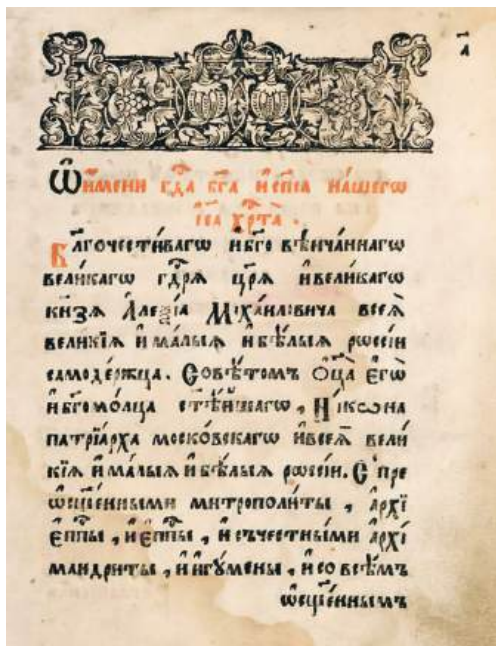 Ѡ и҆мени гдⷭ҇а бг҃а и҆ сп҃са на́шегѡ
і҆с҃а хрⷭ҇та̀ .
Бл҃гочести́вагѡ и҆ бг҃овѣнча́ннагѡ
вели́кагѡ гдⷭ҇рѧ цр҃ѧ и҆ вели́кагѡ
кн҃зѧ А҆леѯі́а Мїха́иловича всеѧ̀
вели́кїѧ и҆ ма́лыѧ и҆ бѣ́лыѧ рѡссі́и
самоде́ржца . Совѣ́томъ Ѻ҆ц҃а̀ є҆гѡ̀
и҆ бг҃омо́лца ст҃ѣ́йшагѡ , Ни́кѡна
патрїа́рха моско́вскагѡ и҆ всеѧ̀ вели́
кїѧ и҆ ма́лыѧ и҆ бѣ́лыѧ рѡссі́и . С пре
ѡ҆сщ҃е́нными митрополи́ты , а҆рхї
є҆пⷭ҇пы , и҆ є҆пⷭ҇пы , и҆ съ честны́ми а҆рхї
мандри́ты , и҆ и҆гꙋ́мены , и҆ со всѣ́мъ
ѡ҆сщ҃е́ннымъ